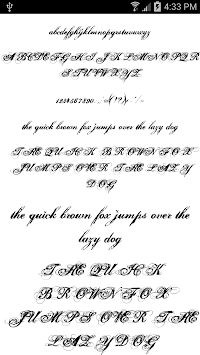 4:33 PM
abcdefghijklmnopqrstuvwxyz
A B C D E F G H I J K L M N O P Q R
S T U V W X Y Z
the quick brown fox jumps over the lazy dog
THE QUICK BROWN FOX
JUMPS OVER THE LAZY
DOG
the quick brown fox jumps over the
lazy dog
THE QUICK
BROWN FOX
JUMPS OVER THE
LAZY DOG